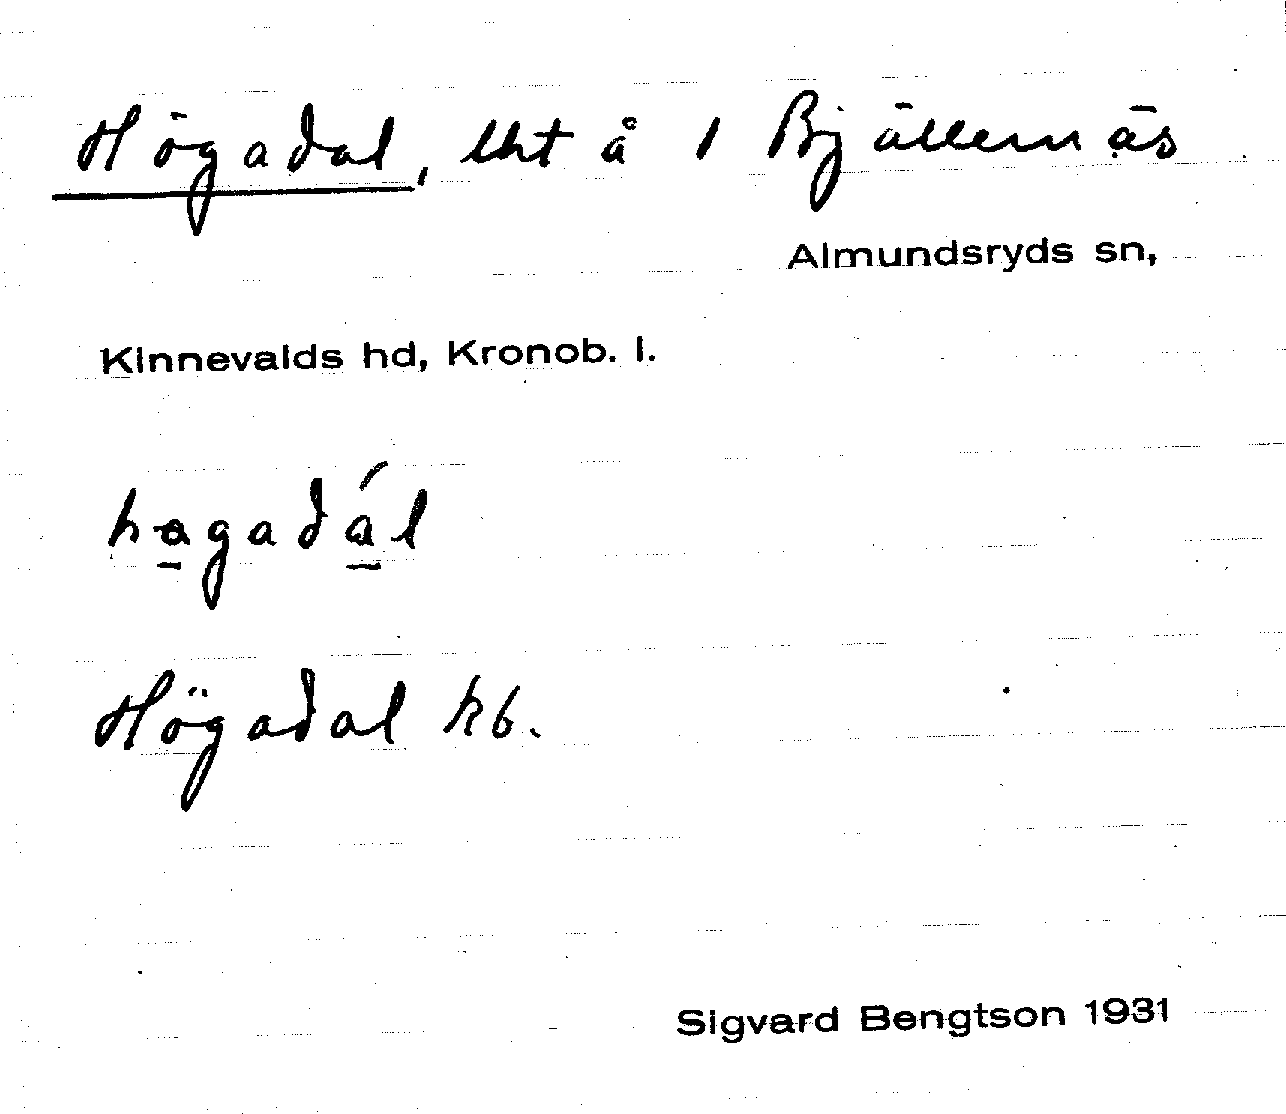 Högadal, lht å 1 Bjällernäs
Almundsryds sn,
Kinnevalds hd, Kronob. l.
høgadál
Högadal kb.
Sigvard Bengtson 1931